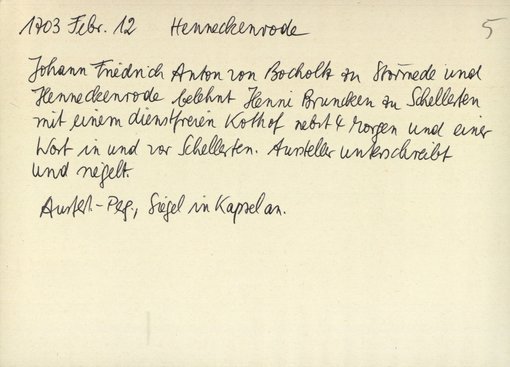 1703 Febr. 12 Henneckenrode 5
Johann Friedrich Anton von Bocholtz zu Störmede und
Henneckenrode belehnt Henni Bruncken zu Schellerten
mit einem dienstfreien Kothof nebst 4 Morgen und einer
Wort in und vor Schellerten. Aussteller unterschreibt
und siegelt.
Ausfert.-Perg., Siegel in Kapsel an.